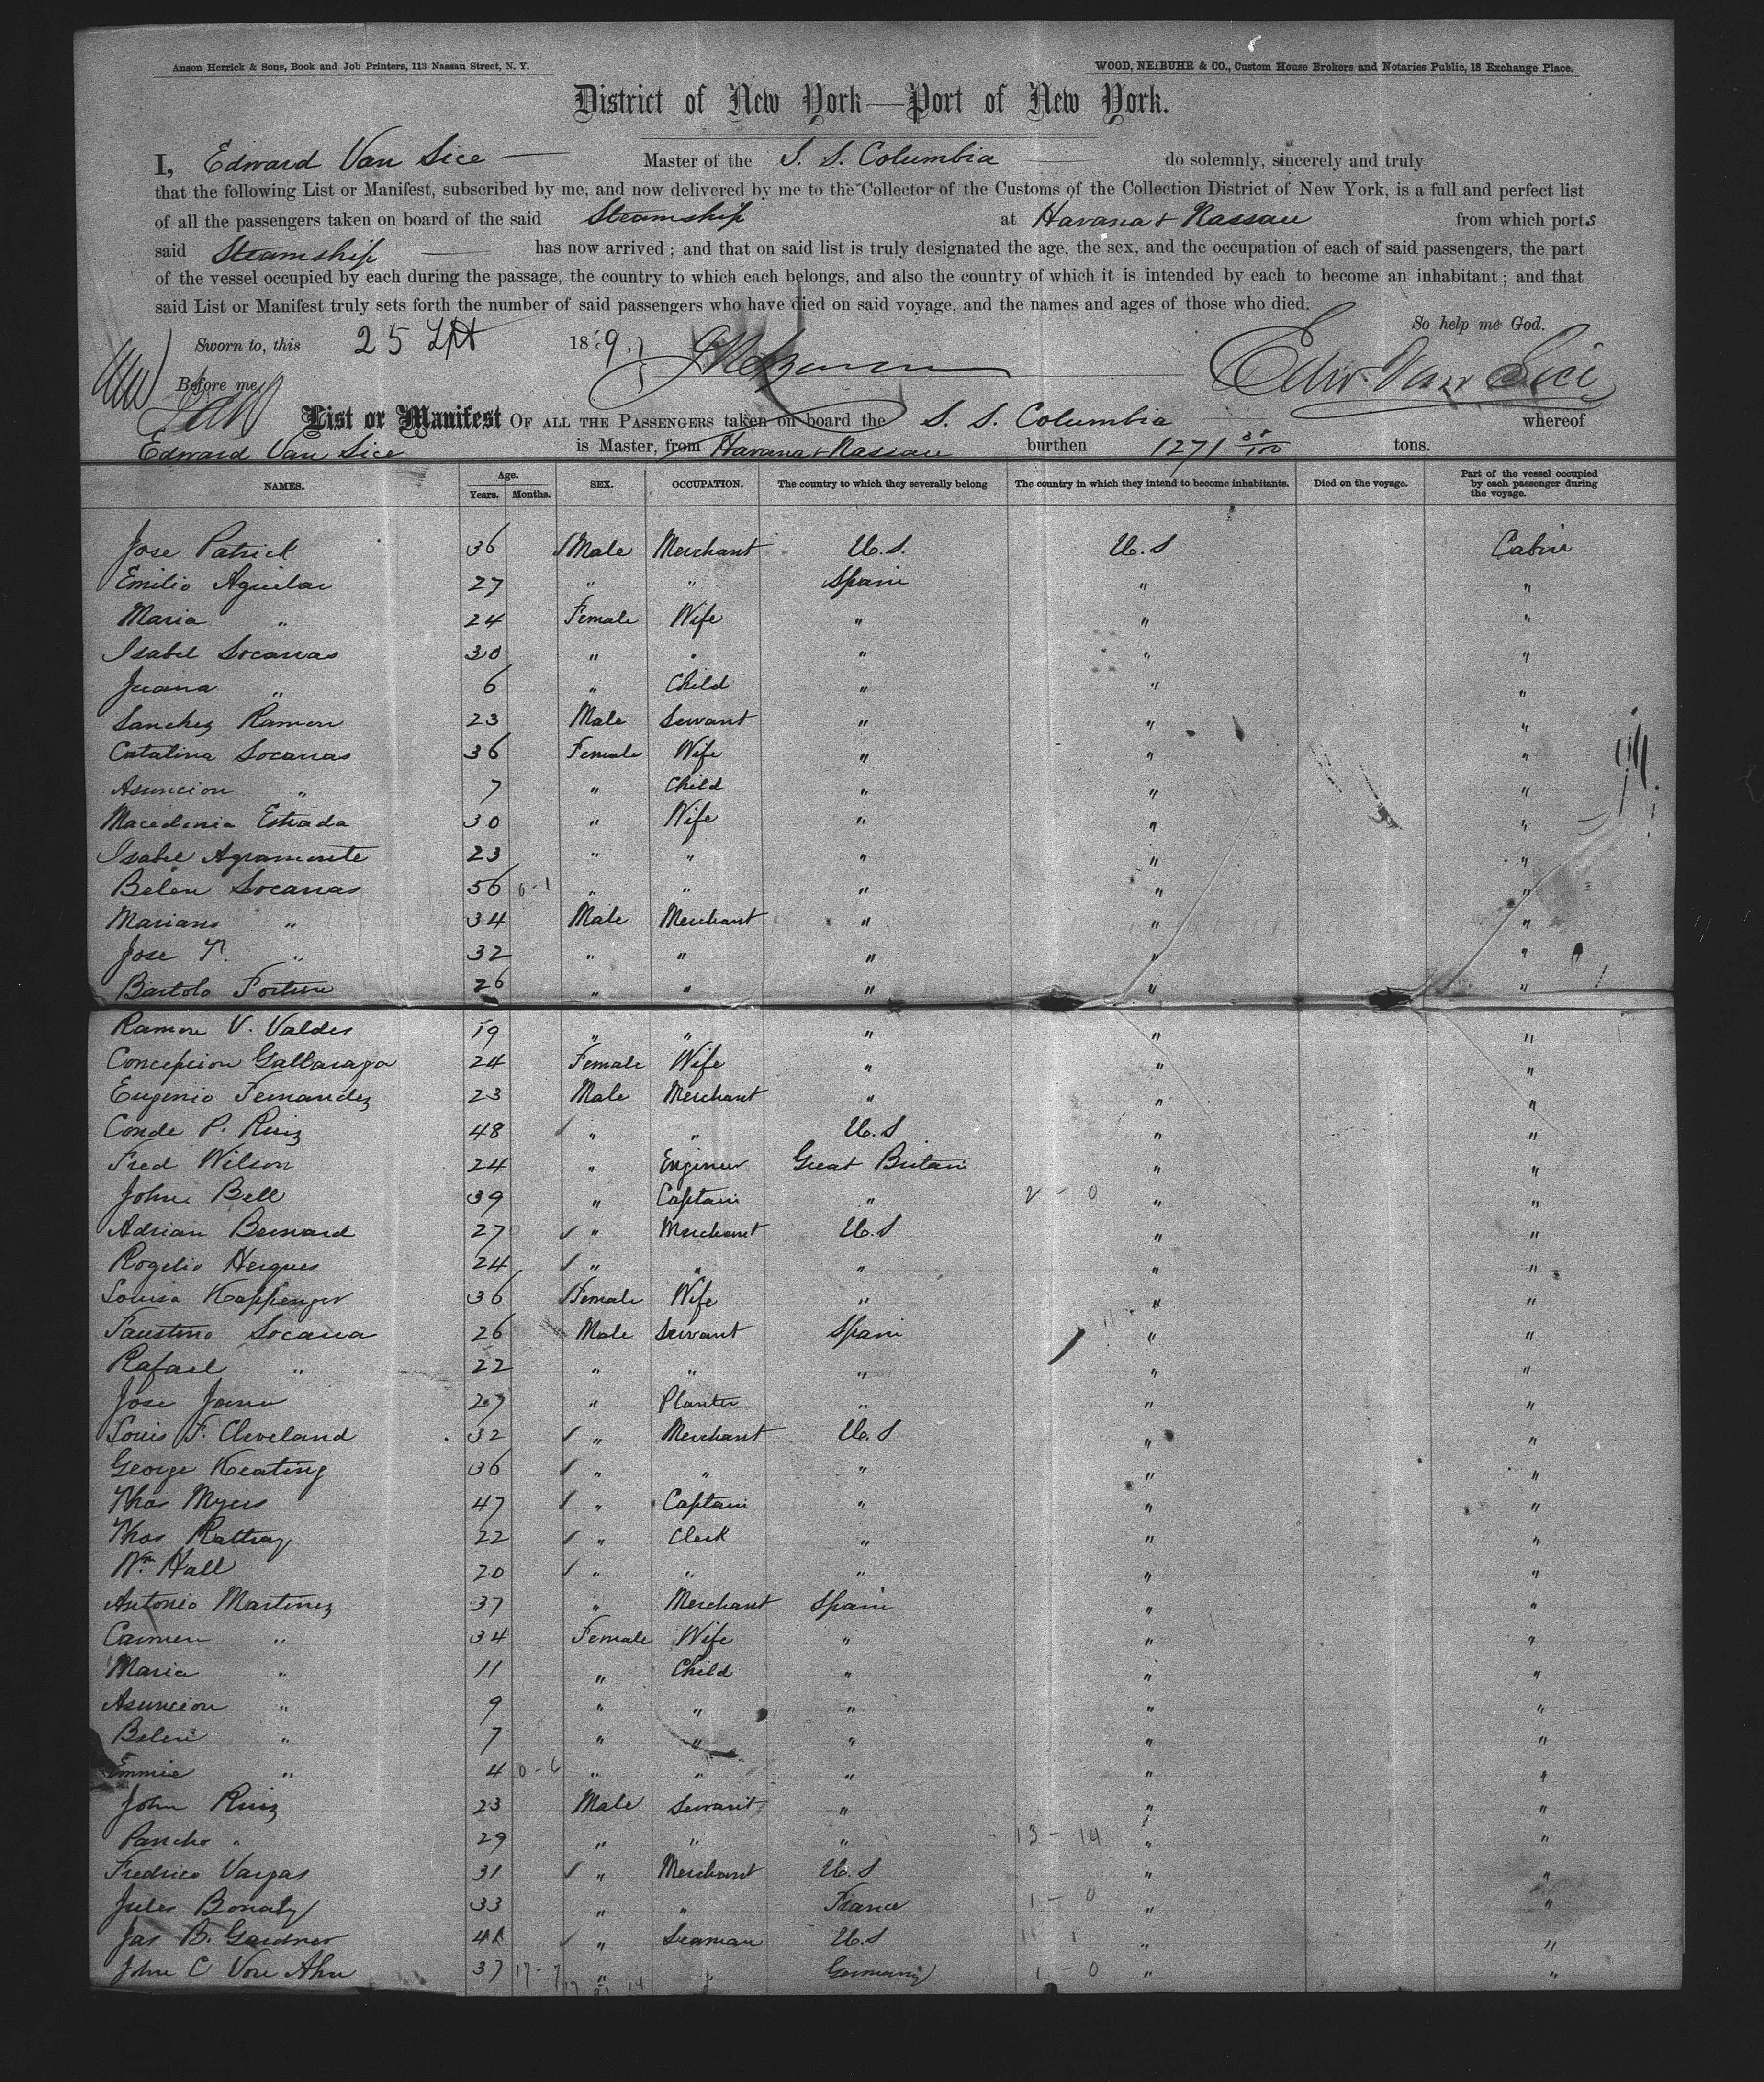 Anson Herrick & Sons, Book and Job Printers, 113 Nassau Street, N. Y. WOOD, NEIBUHR & CO., Custom House Brokers and Notaries Public, 18 Exchange Place.
District of New York—Port of New York.
I, Edward Van Sice Master of the S. S. Columbia do solemnly, sincerely and truly
that the following List or Manifest, subscribed by me, and now delivered by me to the Collector of the Customs of the Collection District of New York, is a full and perfect list
of all the passengers taken on board of the said Steamship at Havana & Nassau from which ports
said Steamship has now arrived; and that on said list is truly designated the age, the sex, and the occupation of each of said passengers, the part
of the vessel occupied by each during the passage, the country to which each belongs, and also the country of which it is intended by each to become an inhabitant; and that
said List or Manifest truly sets forth the number of said passengers who have died on said voyage, and the names and ages of those who died.
So help me God.
Sworn to, this 25 1869
Before me Edw. Van Sice
List or Manifest OF ALL THE PASSENGERS taken on board the S. S. Columbia whereof
Edward Van Sice is Master, from Havana & Nassau burthen 1271 tons.
NAMES. Age. Years. Months. SEX. OCCUPATION. The country to which they severally belong The country in which they intend to become inhabitants. Died on the voyage. Part of the vessel occupied by each passenger during the voyage.
Jose Patrick 36 Male Merchant U.S. U.S Cabin
Emilio Aguilar 27 " " Spain " "
Maria " 24 Female Wife " " "
Isabel Socarras 30 " " " " "
Juana " 6 " Child " " "
Sanchez Ramon 23 Male Servant " " "
Catalina Socarras 36 Female Wife " " "
Asuncion " 7 " Child " " "
Macedonia Estrada 30 " Wife " " "
Isabel Agramonte 23 " " " " "
Belen Socarras 56 0-1 " " " " "
Mariano " 34 Male Merchant " " "
Jose " 32 " " " " "
Bartolo 26 " " " " "
Ramon V. Valdes 19 " " " " "
Concepcion 24 Female Wife " " "
Eugenio Fernandez 23 Male Merchant " " "
Conde P. Ruiz 48 " " U.S " "
Fred Wilson 24 " Engineer Great Britain " "
John Bell 39 " Captain " 2 - 0 " "
Adrian Bernard 27 " Merchant U.S " "
Rogelio 24 " " " " "
Louisa Kappenger 36 Female Wife " " "
Faustino Socarra 26 Male Servant Spain " "
Rafael " 22 " " " " "
Jose 27 " Planter " " "
Louis F. Cleveland 32 " Merchant U.S " "
George Keating 36 " " " " "
Thos Myers 47 " Captain " " "
Thos Rattray 22 " Clerk " " "
Wm Hall 20 " " " " "
Antonio Martinez 37 " Merchant Spain " "
Carmen " 34 Female Wife " " "
Maria " 11 " Child " " "
Asuncion " 9 " " " " "
Belen " 7 " " " " "
Emmie " 4 0-6 " " " " "
John Ruiz 23 Male Servant " " "
Pancho " 29 " " " 13 - 14 " "
Fredrico Vargas 31 " Merchant U.S " "
Jules 33 " " France 1 - 0 " "
Jas B. Gardner 41 " Seaman U.S 11 1 " "
John C Von Ahn 37 17-7 " " Germany 1 - 0 " "